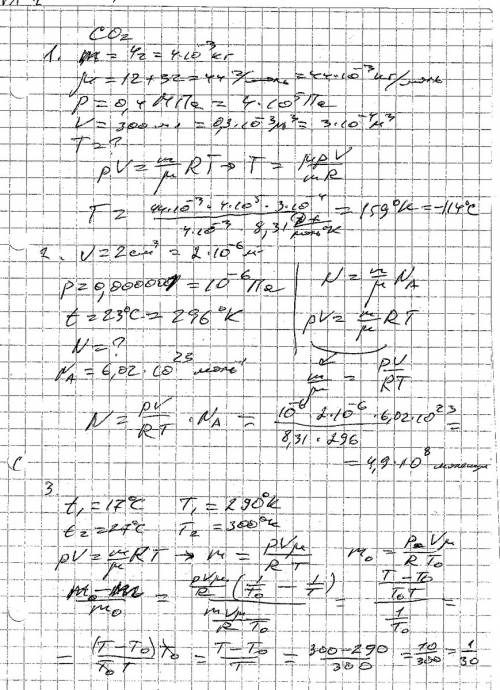 CO₂
1. m = 4г = 4·10⁻³ кг
μ = 12 + 32 = 44 г/моль = 44·10⁻³ кг/моль
p = 0,4 МПа = 4·10⁵ Па
V = 300 мл = 0,3·10⁻³ м³ = 3·10⁻⁴ м³
T = ?
pV = m/μ RT → T = μpV/mR
T = 44·10⁻³·4·10⁵·3·10⁻⁴ / 4·10⁻³·8,31 Дж/моль°К = 159°K = -114°C
2. V = 2 см³ = 2·10⁻⁶ м³
p = 0,000001 = 10⁻⁶ Па
t = 23°C = 296°K
N = ?
N_A = 6,02·10²³ моль⁻¹
N = m/μ N_A
pV = m/μ RT
m/μ = pV/RT
N = pV/RT · N_A = 10⁻⁶·2·10⁻⁶·6,02·10²³ / 8,31·296 =
= 4,9·10⁸
3.
t₁ = 17°C T₁ = 290°K
t₂ = 27°C T₂ = 300°K
pV = m/μ RT → m = pVμ/RT m₀ = p₀Vμ/RT₀
m₀ - m / m₀ = pVμ/R (1/T₀ - 1/T) / pVμ/RT₀ = T - T₀/T₀T / 1/T₀ =
= (T - T₀) T₀ / T₀T = T - T₀ / T = 300 - 290 / 300 = 10/300 = 1/30